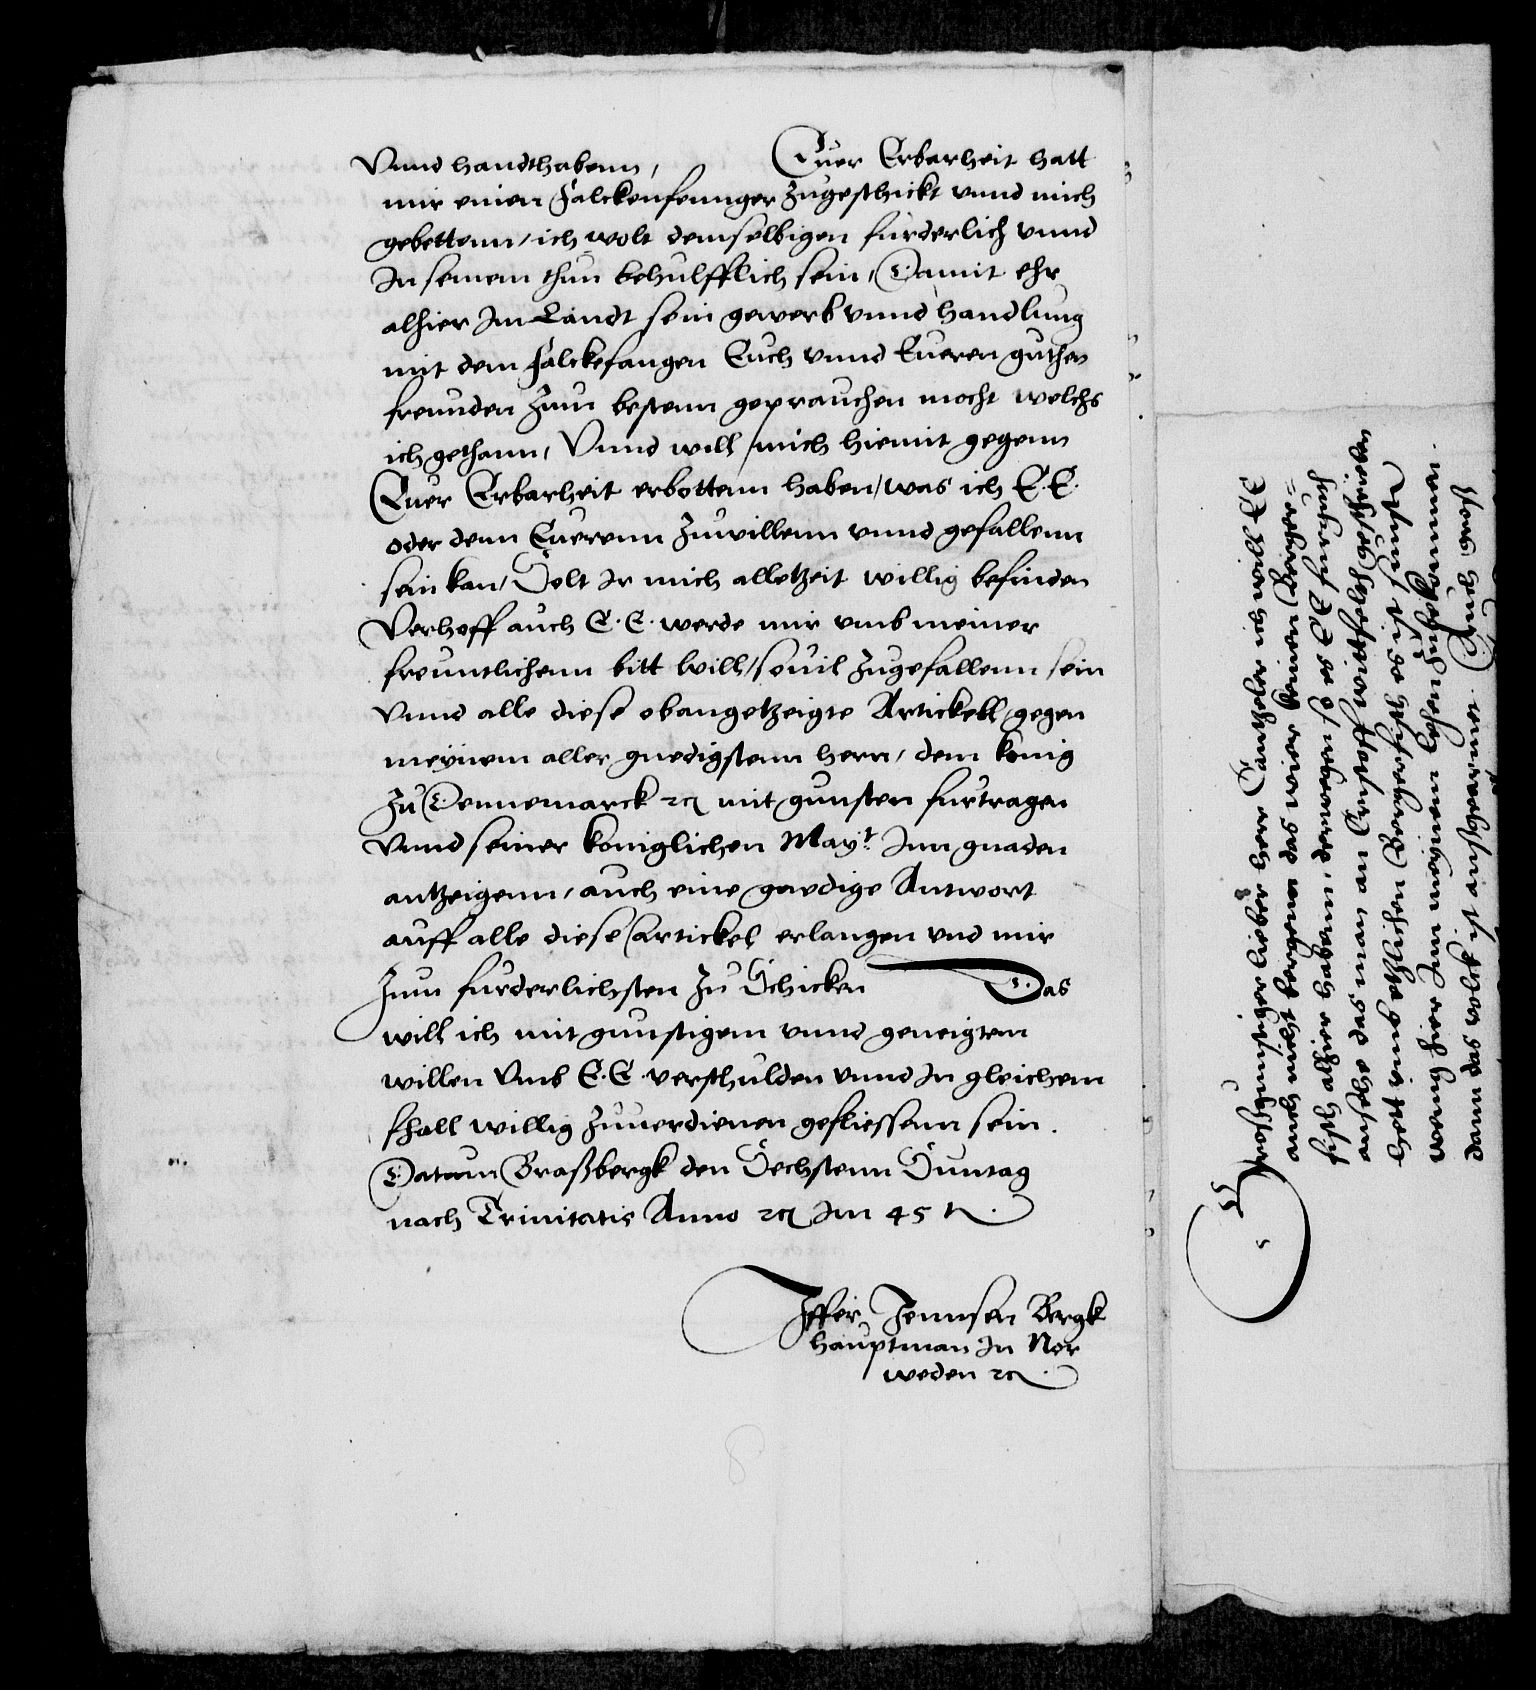 Vnnd handthabenn, Euer Erbarheit hatt
mir einen Falckenfennger zugeschickt vnnd mich
gebettenn, ich wolt demselbigen furderlich vnnd
In seinem thun behulfflich sein, Damit ehr
alhier Im Landt sein gewerb vnnd handlung
mit dem Falckefangen Euch vnnd Eueren guthen
freunden zum bestenn geprauchen mocht welchs
ich gethann, Vnnd will mich hiemit gegenn
Euer Erbarheit erbottenn haben, was ich E. E.
oder denn Euerenn zuwillenn vnnd gefallenn
sein kan, Solt Ir mich alletzeit willig befinden
Verhoff auch E. E. werde mir vmb meiner
freuntlichenn bitt will, souil zugefallenn sein
Vnnd alle diese obangetzeigte Artickell gegen
meynem aller gnedigstenn herrn, dem konig
zu Dennemarck ꝛc mit gunsten furtragen
Vnnd seiner koniglichen Mayt. Inn gnaden
antzeigenn, auch eine gnedige Antwort
auff alle diese Artickel erlangen vnd mir
zum furderlichsten zu Schicken Das
will ich mit gunstigem vnnd geneigtem
willen Vmb E. E. verschulden vnnd In gleichem
fhall willig zuuerdienen geflissenn sein.
Datum Graßbergk den Sechstenn Suntag
nach Trinitatis Anno ꝛc Im 45 ꝛc.
Jffer Jennsen Bergk
Hauptman In Nor
weden ꝛc.
Großgunstiger lieber herr Cantzeler ich will E E
auch nicht bergenn das wier keinen Berger=
fisch alhier habenn, derwegen so es E E
ansehe das man an
hett vmb etzlichen Bergerfisch es ist sunst
wenig hier Inn meynem Lehen zubekommen.
dann das volck ist außgearmet. Auch